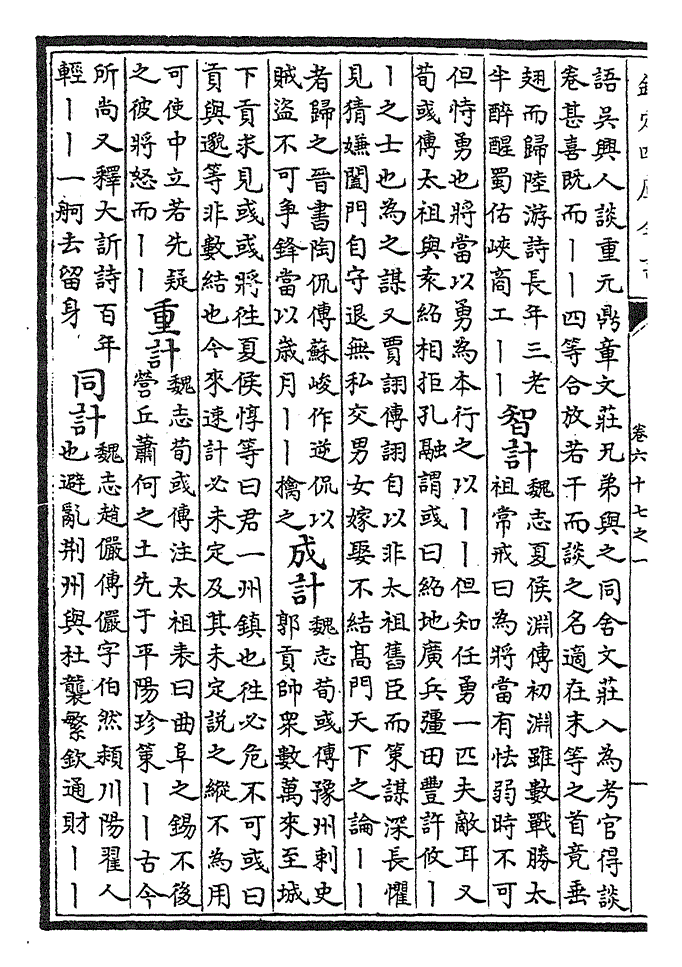 欽定四庫全書
卷六十七之一
一
語吳興人談重元鼎章文莊兄弟與之同舍文莊入為考官得談
卷甚喜既而丨丨四等合放若干而談之名適在末等之首竟垂
翅而歸陸游詩長年三老
半醉醒蜀估峽商工丨丨
智計
魏志夏侯淵傳初淵雖數戰勝太
祖常戒曰為將當有怯弱時不可
但恃勇也將當以勇為本行之以丨丨但知任勇一匹夫敵耳又
荀彧傳太祖與袁紹相拒孔融謂彧曰紹地廣兵彊田豐許攸丨
丨之士也為之謀又賈詡傳詡自以非太祖舊臣而策謀深長懼
見猜嫌闔門自守退無私交男女嫁娶不結高門天下之論丨丨
者歸之晉書陶侃傳蘇峻作逆侃以
賊盜不可爭鋒當以歲月丨丨擒之
成計
魏志荀彧傳豫州刺史
郭貢帥衆數萬來至城
下貢求見彧彧將往夏侯惇等曰君一州鎮也往必危不可彧曰
貢與邈等非數結也今來速計必未定及其未定說之縱不為用
可使中立若先疑
之彼將怒而丨丨
重計
魏志荀彧傳注太祖表曰曲阜之錫不後
營丘蕭何之土先于平陽珍策丨丨古今
所尚又釋大訢詩百年
輕丨丨一舸去留身
同計
魏志趙儼傳儼字伯然潁川陽翟人
也避亂荆州與杜襲繁欽通財丨丨